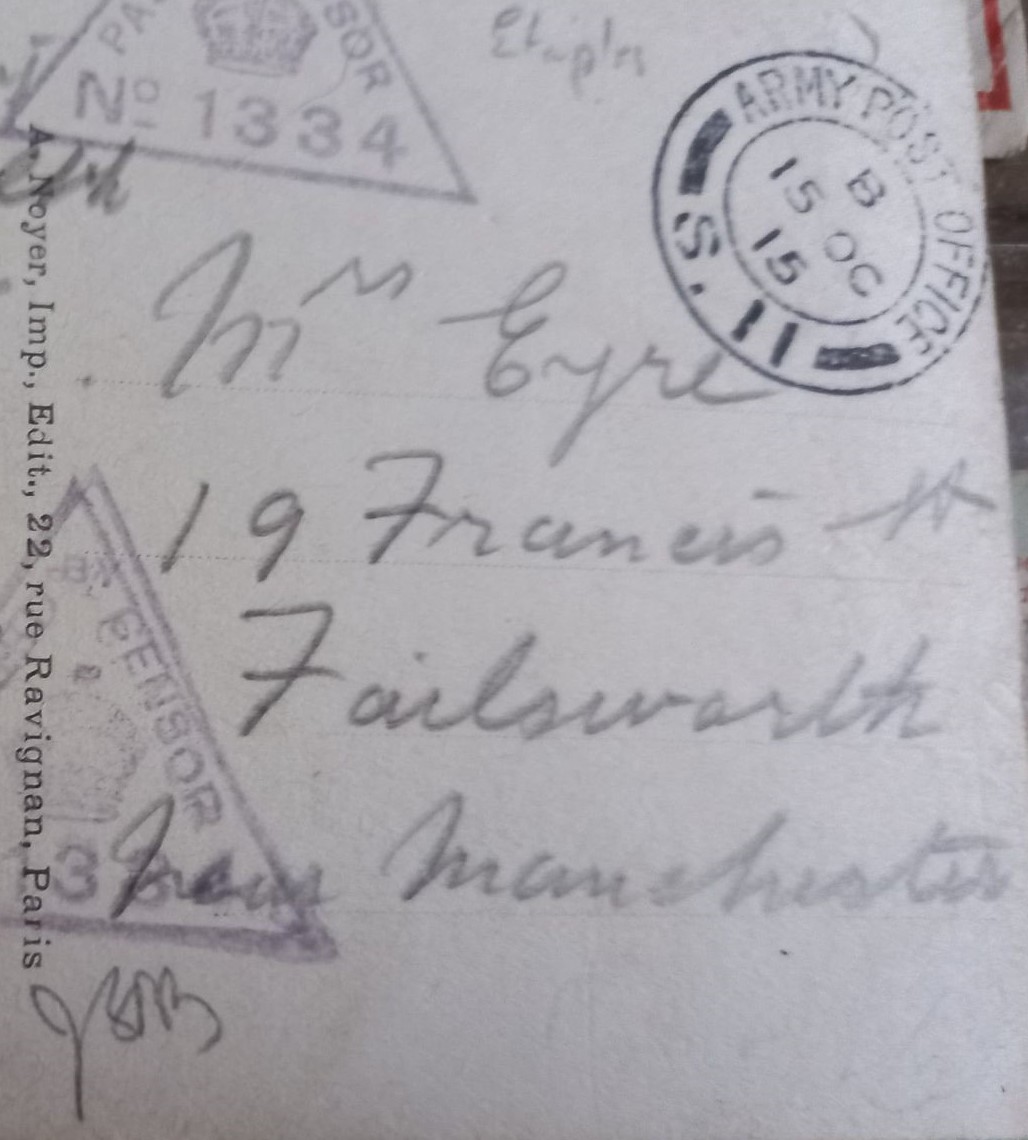 PA SOR
No 1334
Etaples
ARMY POST OFFICE
B
15 OC
15
S.11
Mrs Eyre
19 Francis St
Failsworth
Near Manchester
CENSOR
3
A. Noyer, Imp., Edit., 22, rue Ravignan, Paris